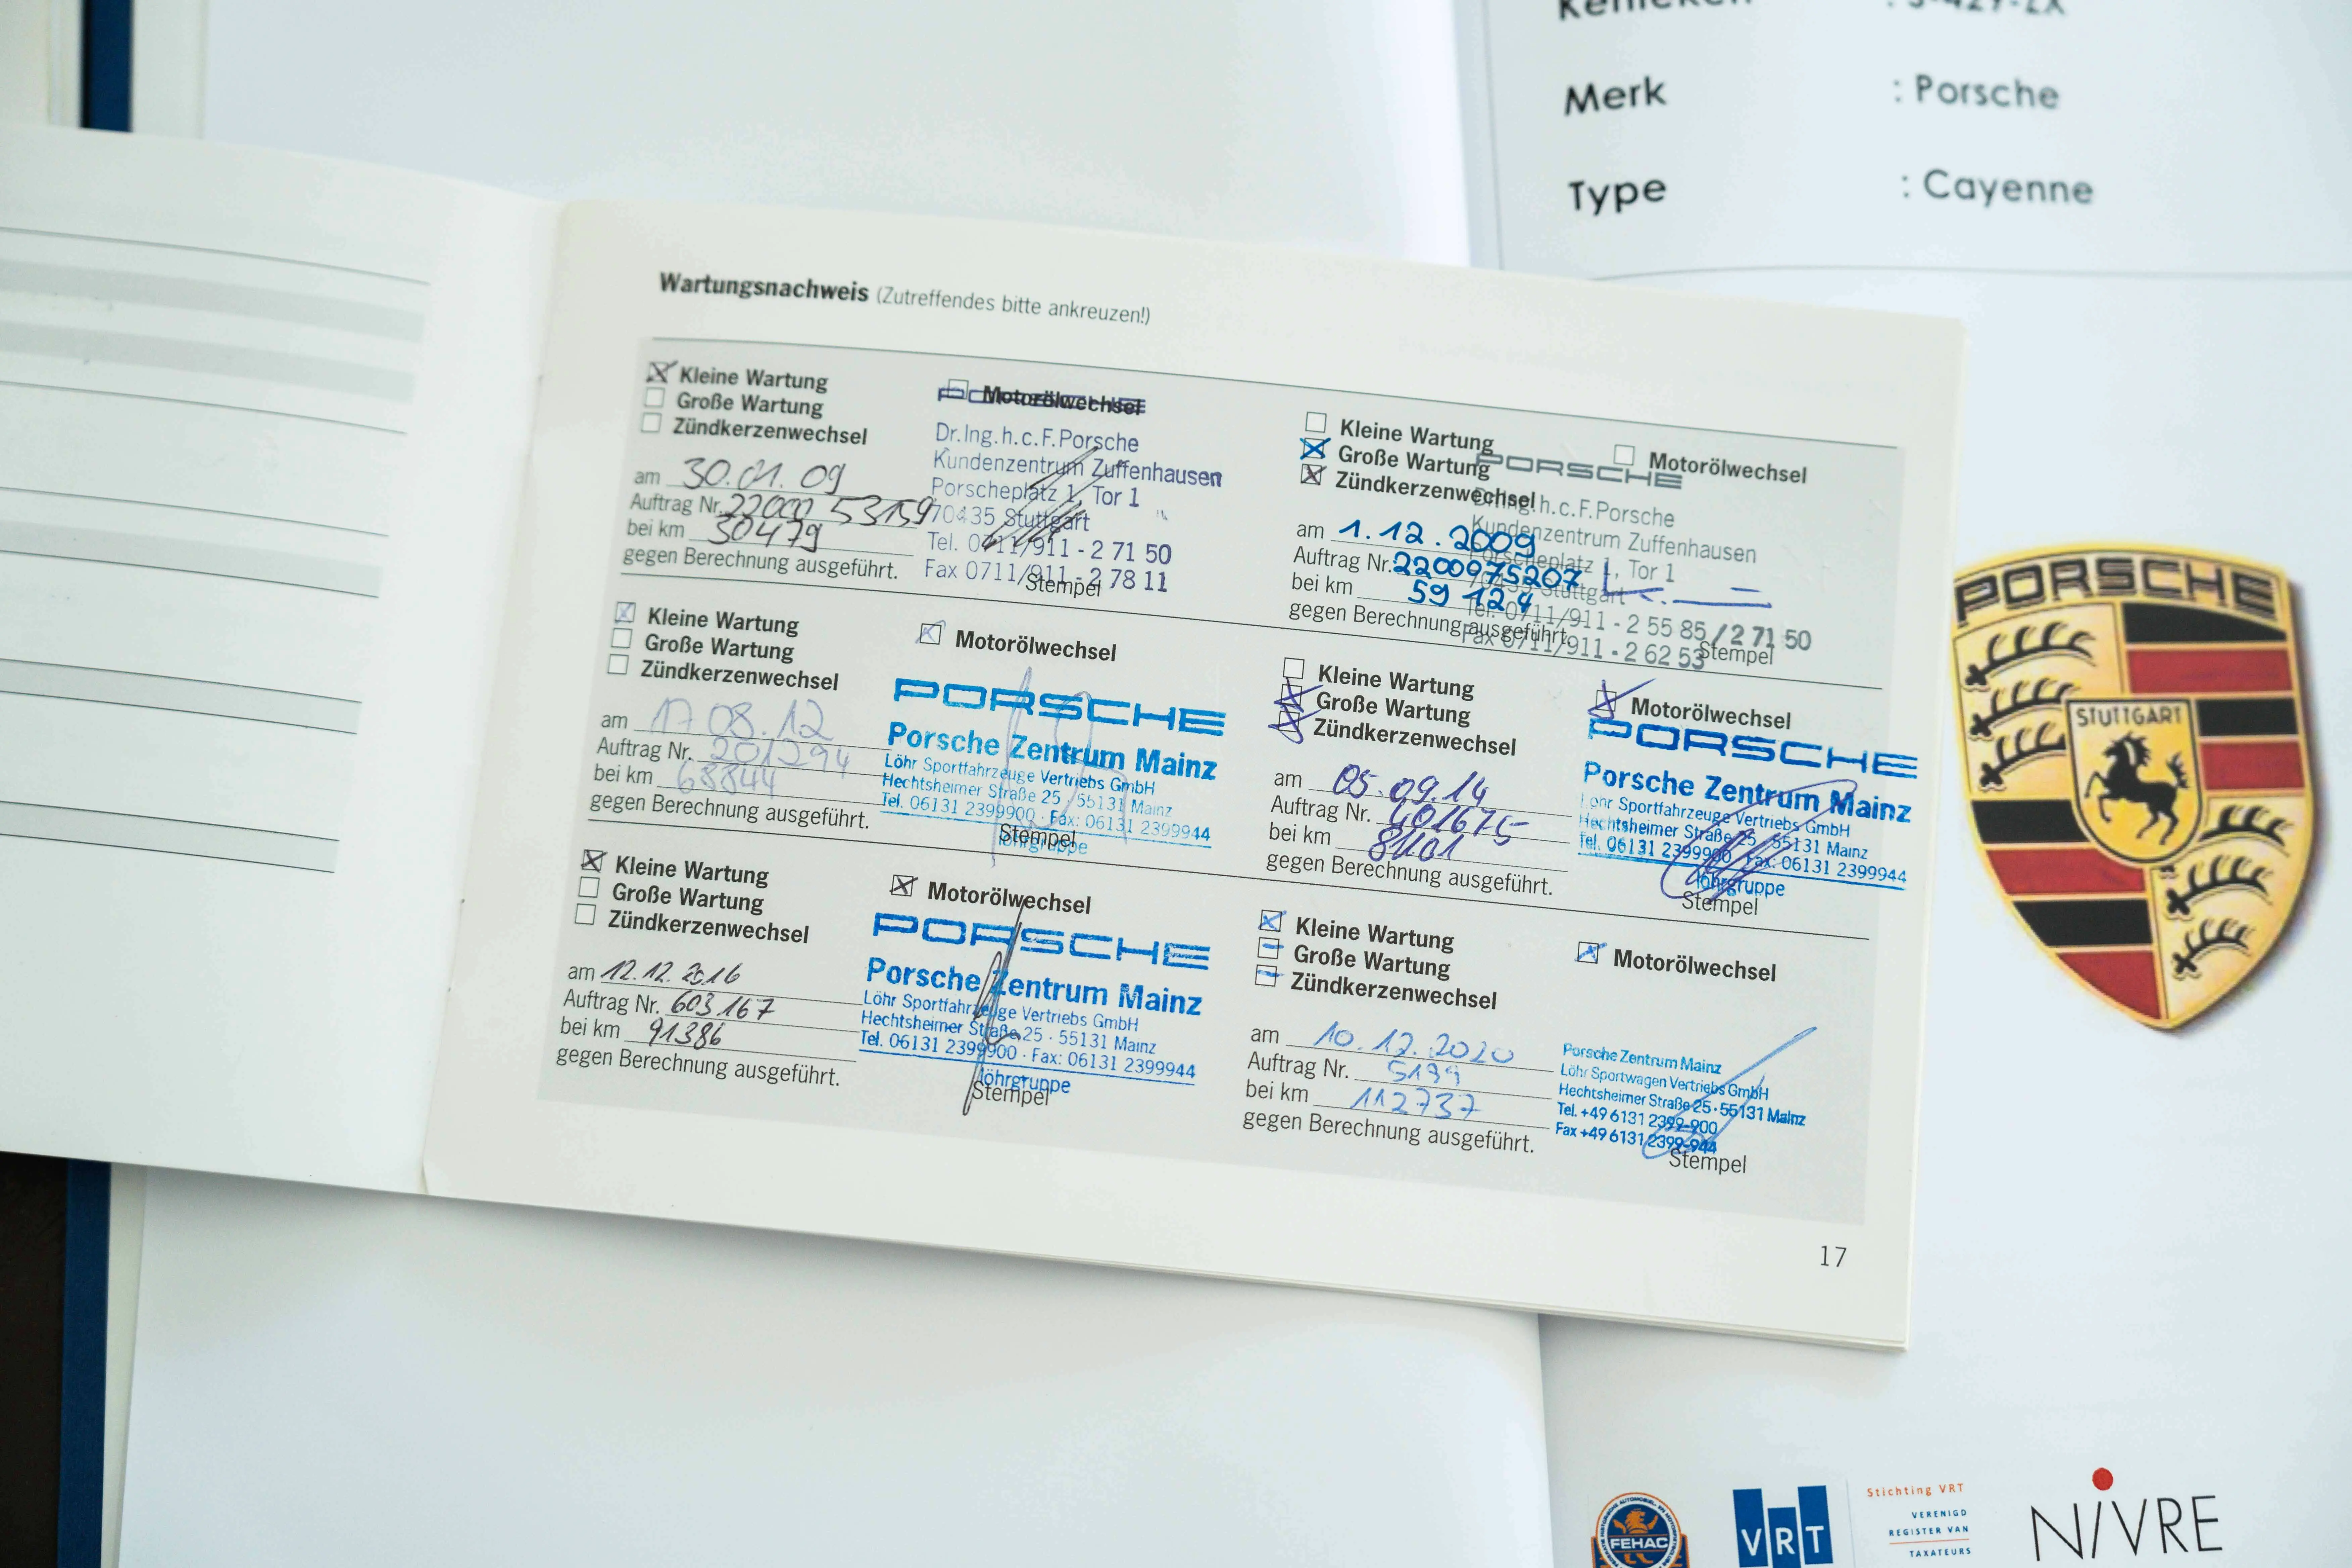 Merk : Porsche
Type : Cayenne
Wartungsnachweis (Zutreffendes bitte ankreuzen!)
Kleine Wartung
Große Wartung
Zündkerzenwechsel
Motorölwechsel
am 30.01.09
Auftrag Nr.
bei km 30479
gegen Berechnung ausgeführt.
Dr.Ing.h.c.F.Porsche
Kundenzentrum Zuffenhausen
Porscheplatz 1, Tor 1
70435 Stuttgart
Tel. 0711/911 - 2 71 50
Fax 0711/911 - 2 78 11
Stempel
Kleine Wartung
Große Wartung
Zündkerzenwechsel
Motorölwechsel
am 1.12.2009
Auftrag Nr. 2200975207
bei km 59 124
gegen Berechnung ausgeführt.
PORSCHE
Dr.Ing.h.c.F.Porsche
Kundenzentrum Zuffenhausen
Porscheplatz 1, Tor 1
70435 Stuttgart
Tel. 0711/911 - 2 55 85 / 2 71 50
Fax 0711/911 - 2 62 53
Stempel
Kleine Wartung
Große Wartung
Zündkerzenwechsel
Motorölwechsel
am 17 08.12
Auftrag Nr. 201294
bei km 68844
gegen Berechnung ausgeführt.
PORSCHE
Porsche Zentrum Mainz
Löhr Sportfahrzeuge Vertriebs GmbH
Hechtsheimer Straße 25 · 55131 Mainz
Tel. 06131 2399900 · Fax: 06131 2399944
löhrgruppe
Stempel
Kleine Wartung
Große Wartung
Zündkerzenwechsel
Motorölwechsel
am 05.09.14
Auftrag Nr. 401675
bei km
gegen Berechnung ausgeführt.
PORSCHE
Porsche Zentrum Mainz
Löhr Sportfahrzeuge Vertriebs GmbH
Hechtsheimer Straße 25 · 55131 Mainz
Tel. 06131 2399900 · Fax: 06131 2399944
löhrgruppe
Stempel
Kleine Wartung
Große Wartung
Zündkerzenwechsel
Motorölwechsel
am 12.12.2016
Auftrag Nr. 603167
bei km 91386
gegen Berechnung ausgeführt.
PORSCHE
Porsche Zentrum Mainz
Löhr Sportfahrzeuge Vertriebs GmbH
Hechtsheimer Straße 25 · 55131 Mainz
Tel. 06131 2399900 · Fax: 06131 2399944
löhrgruppe
Stempel
Kleine Wartung
Große Wartung
Zündkerzenwechsel
Motorölwechsel
am 10.12.2020
Auftrag Nr.
bei km 112737
gegen Berechnung ausgeführt.
Porsche Zentrum Mainz
Löhr Sportwagen Vertriebs GmbH
Hechtsheimer Straße 25 · 55131 Mainz
Tel. +49 6131 2399-900
Fax +49 6131 2399-944
Stempel
17
PORSCHE
STUTTGART
FEHAC
VRT
Stichting VRT
VERENIGD
REGISTER VAN
TAXATEURS
NIVRE